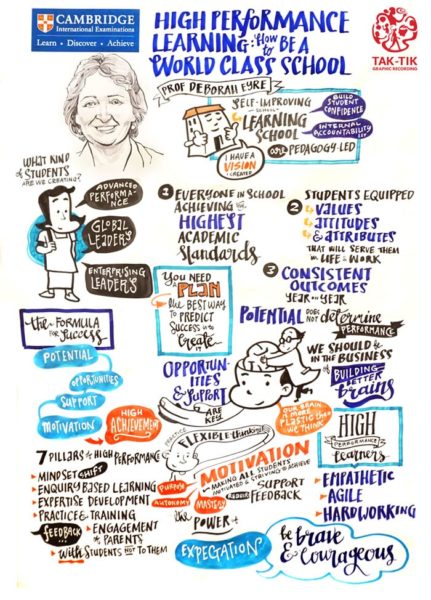 CAMBRIDGE
International Examinations
Learn • Discover • Achieve
HIGH PERFORMANCE
LEARNING: HOW
to BE A
WORLD CLASS SCHOOL
TAK-TIK
GRAPHIC RECORDING
PROF DEBORAH EYRE
SELF-IMPROVING
SCHOOL
LEARNING
SCHOOL
are PEDAGOGY-LED
BUILD
STUDENT
CONFIDENCE
INTERNAL
ACCOUNTABILITY
I HAVE A
VISION
WHAT KIND
of STUDENTS
ARE WE CREATING?
ADVANCED
PERFORMANCE
GLOBAL
LEADERS
ENTERPRISING
LEADERS
1 EVERYONE IN SCHOOL
ACHIEVING the
HIGHEST
ACADEMIC
Standards
2 STUDENTS EQUIPPED
VALUES
ATTITUDES
& ATTRIBUTES
THAT WILL SERVE THEM
in LIFE & WORK
3 CONSISTENT
OUTCOMES
YEAR on YEAR
YOU NEED
a PLAN
the BEST WAY
TO PREDICT
SUCCESS is to
Create
IT
POTENTIAL DOES
NOT determine
PERFORMANCE
WE SHOULD be
IN THE BUSINESS
of BUILDING
BETTER
brains
the FORMULA
for Success
POTENTIAL
OPPORTUNITIES
SUPPORT
MOTIVATION
HIGH
ACHIEVEMENT
OPPORTUN-
ITIES
& SUPPORT
ARE
KEY
OUR BRAIN
IS MORE
PLASTIC than
WE THINK
HIGH
PERFORMANCE
learners
EMPATHETIC
AGILE
HARDWORKING
7 PILLARS of HIGH PERFORMANCE
MINDSET SHIFT
ENQUIRY BASED LEARNING
EXPERTISE DEVELOPMENT
PRACTICE & TRAINING
FEEDBACK...
ENGAGEMENT
of PARENTS
with STUDENTS NOT TO THEM
PRACTICE
FLEXIBLE thinking
MOTIVATION
MAKING ALL STUDENTS
MOTIVATED & STRIVING TO ACHIEVE
PURPOSE
AUTONOMY
MASTERY
REQUIRE SUPPORT
FEEDBACK
the POWER of
EXPECTATION
be brave
& courageous